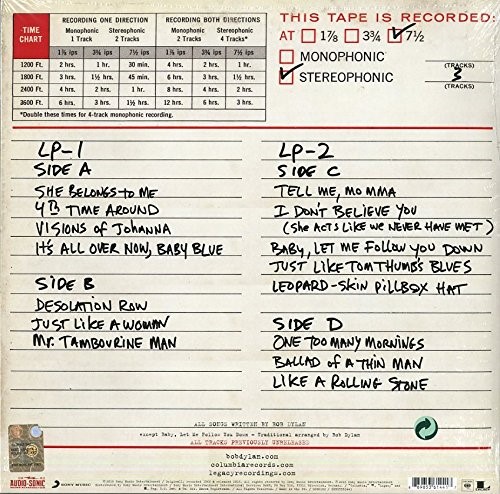 TIME CHART
RECORDING ONE DIRECTION
RECORDING BOTH DIRECTIONS
Monophonic 1 Track
Stereophonic 2 Tracks
Monophonic 2 Tracks
Stereophonic 4 Tracks*
1⅞ ips 3¾ ips 7½ ips 1⅞ ips 3¾ ips 7½ ips
1200 Ft. 2 hrs. 1 hr. 30 min. 4 hrs. 2 hrs. 1 hr.
1800 Ft. 3 hrs. 1½ hrs. 45 min. 6 hrs. 3 hrs. 1½ hrs.
2400 Ft. 4 hrs. 2 hrs. 1 hr. 8 hrs. 4 hrs. 2 hrs.
3600 Ft. 6 hrs. 3 hrs. 1½ hrs. 12 hrs. 6 hrs. 3 hrs.
*Double these times for 4-track monophonic recording.
THIS TAPE IS RECORDED:
AT 1⅞ 3¾ 7½
MONOPHONIC
(TRACKS)
STEREOPHONIC 3
(TRACKS)
LP-1
SIDE A
SHE BELONGS TO ME
4TH TIME AROUND
VISIONS OF JOHANNA
IT'S ALL OVER NOW, BABY BLUE
SIDE B
DESOLATION ROW
JUST LIKE A WOMAN
MR. TAMBOURINE MAN
LP-2
SIDE C
TELL ME, MOMMA
I DON'T BELIEVE YOU
(SHE ACTS LIKE WE NEVER HAVE MET)
BABY, LET ME FOLLOW YOU DOWN
JUST LIKE TOM THUMB'S BLUES
LEOPARD-SKIN PILLBOX HAT
SIDE D
ONE TOO MANY MORNINGS
BALLAD OF A THIN MAN
LIKE A ROLLING STONE
ALL SONGS WRITTEN BY BOB DYLAN
except Baby, Let Me Follow You Down - Traditional arranged by Bob Dylan
ALL TRACKS PREVIOUSLY UNRELEASED
bobdylan.com
columbiarecords.com
legacyrecordings.com
AUDIO-SONIC
SONY MUSIC
LEGACY